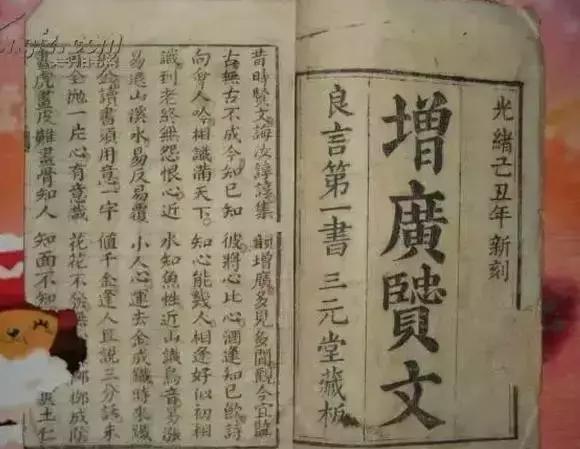 光緒己丑年新刻
增廣賢文
良言第一書 三元堂藏板
昔時賢文誨汝諄諄集韻增廣多見多聞觀今宜監
古無古不成今知己知彼將心比心酒逢知己飲詩
向會人吟相識滿天下知心能幾人相逢好似初相
識到老終無怨恨心近水知魚性近山識鳥音易漲
易退山溪水易反易覆小人心運去金成鐵時來鐵
似金讀書須用意一字值千金逢人且說三分話未
可全拋一片心有意栽花花不發無柳成陰
畫虎畫皮難畫骨知人知面不知土仁